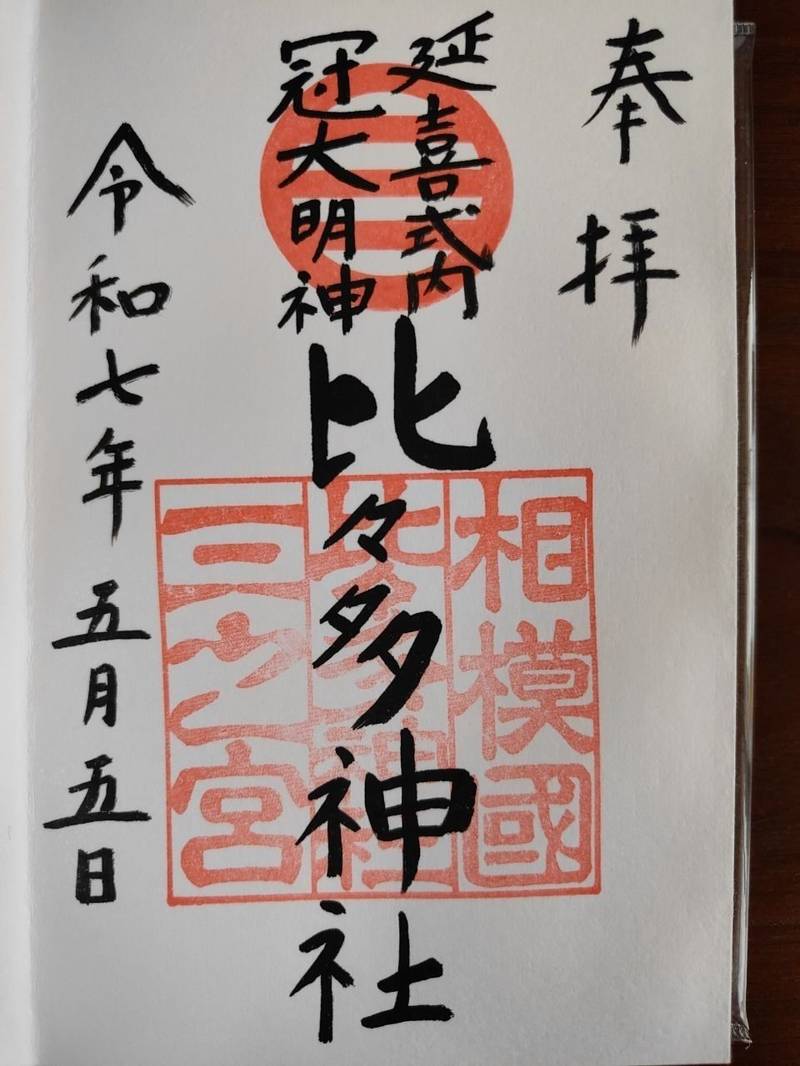 奉拝
延喜式内
冠大明神
比々多神社
令和七年五月五日
相模國
比々多神社
三之宮